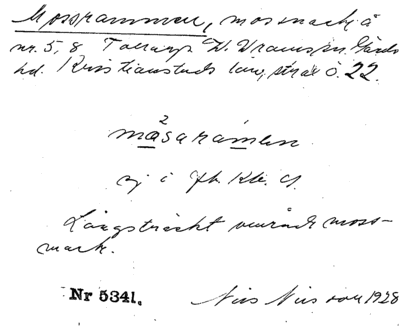 Mossrammen, mossmark å
nr. 5, 8 Tollarp V. Vrams sn. Gärds
hd. Kristianstads län, strax ö. 22.
2
måsarámen
ej i Jb. Kt. 
Långsträckt moss-
mark.
Nr 5341. Nils Nilsson 1928